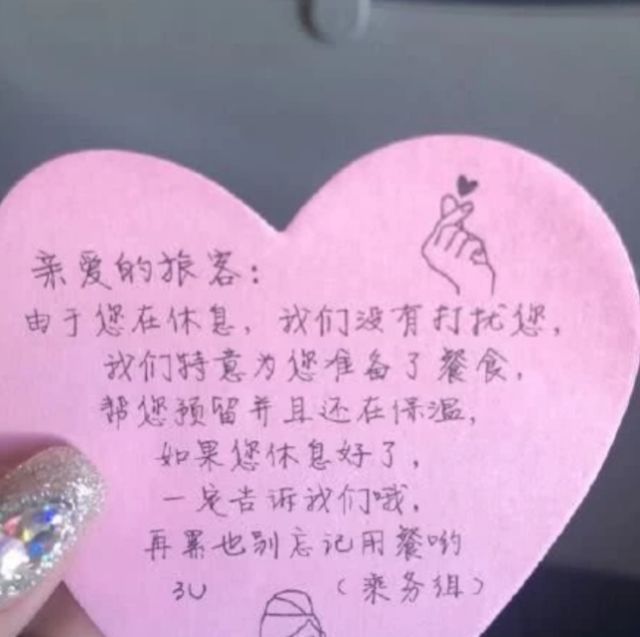 亲爱的旅客：
由于您在休息，我们没有打扰您，
我们特意为您准备了餐食，
帮您预留并且还在保温，
如果您休息好了，
一定告诉我们哦，
再累也别忘记用餐哟
3U （乘务组）